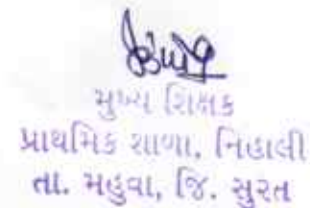 મુખ્ય શિક્ષક
પ્રાથમિક શાળા, નિહાલી
તા. મહુવા, જિ. સુરત